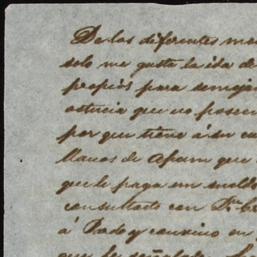 De las diferentes me
solo me gusta la ida de
propios para semejan
astucia que no posee
por que tiene á su cu
Llanos de Apam que
que le paga un sueldo
consultado con Dn.
á Rode y convino en
que le señalara